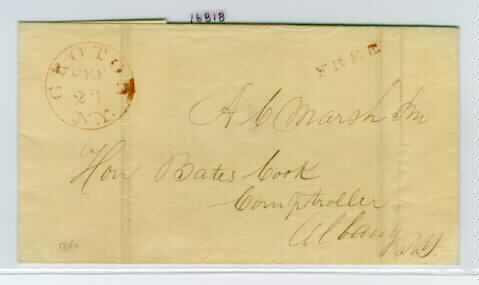 18818
GROTON
SEP
27
N.Y.
FREE
A C Marsh Pm
Hon Bates Cook
Comptroller
Albany
N.Y.